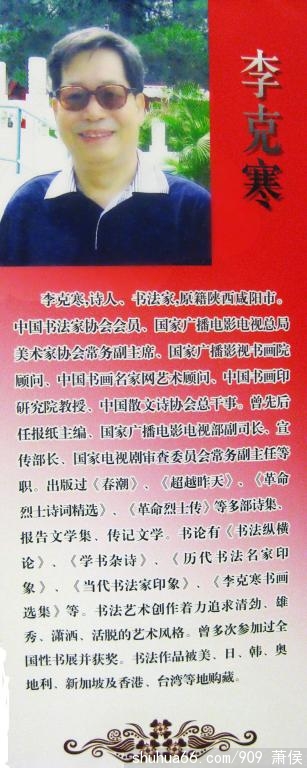 李克寒
李克寒,诗人、书法家,原籍陕西咸阳市。
中国书法家协会会员、国家广播电影电视总局
美术家协会常务副主席、国家广播影视书画院
顾问、中国书画名家网艺术顾问、中国书画印
研究院教授、中国散文诗协会总干事。曾先后
任报纸主编、国家广播电影电视部副司长、宣
传部长、国家电视剧审查委员会常务副主任等
职。出版过《春潮》、《超越昨天》、《革命
烈士诗词精选》、《革命烈士传》等多部诗集、
报告文学集、传记文学。书论有《书法纵横
论》、《学书杂诗》、《历代书法名家印
象》、《当代书法家印象》、《李克寒书画
选集》等。书法艺术创作着力追求清劲、雄
秀、潇洒、活脱的艺术风格。曾多次参加过全
国性书展并获奖。书法作品被美、日、韩、奥
地利、新加坡及香港、台湾等地购藏。
shuhua66.com/909 萧侯